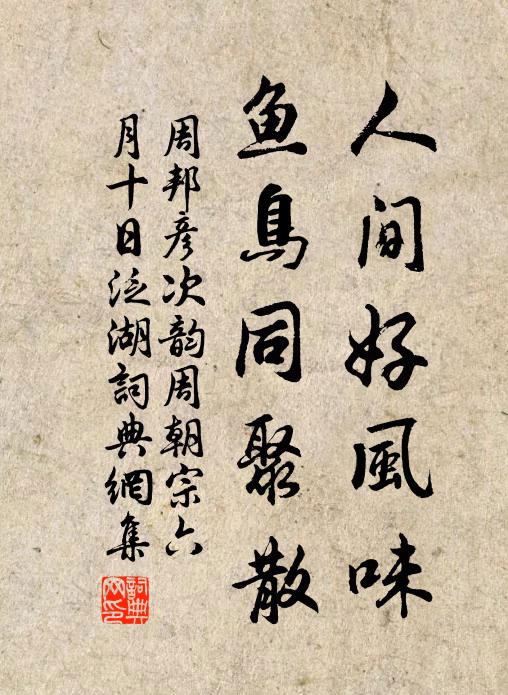 人间好風味
鱼鳥同聚散
周邦彦次韵周朝宗六
月十日泛湖詞典網集
詞典網印